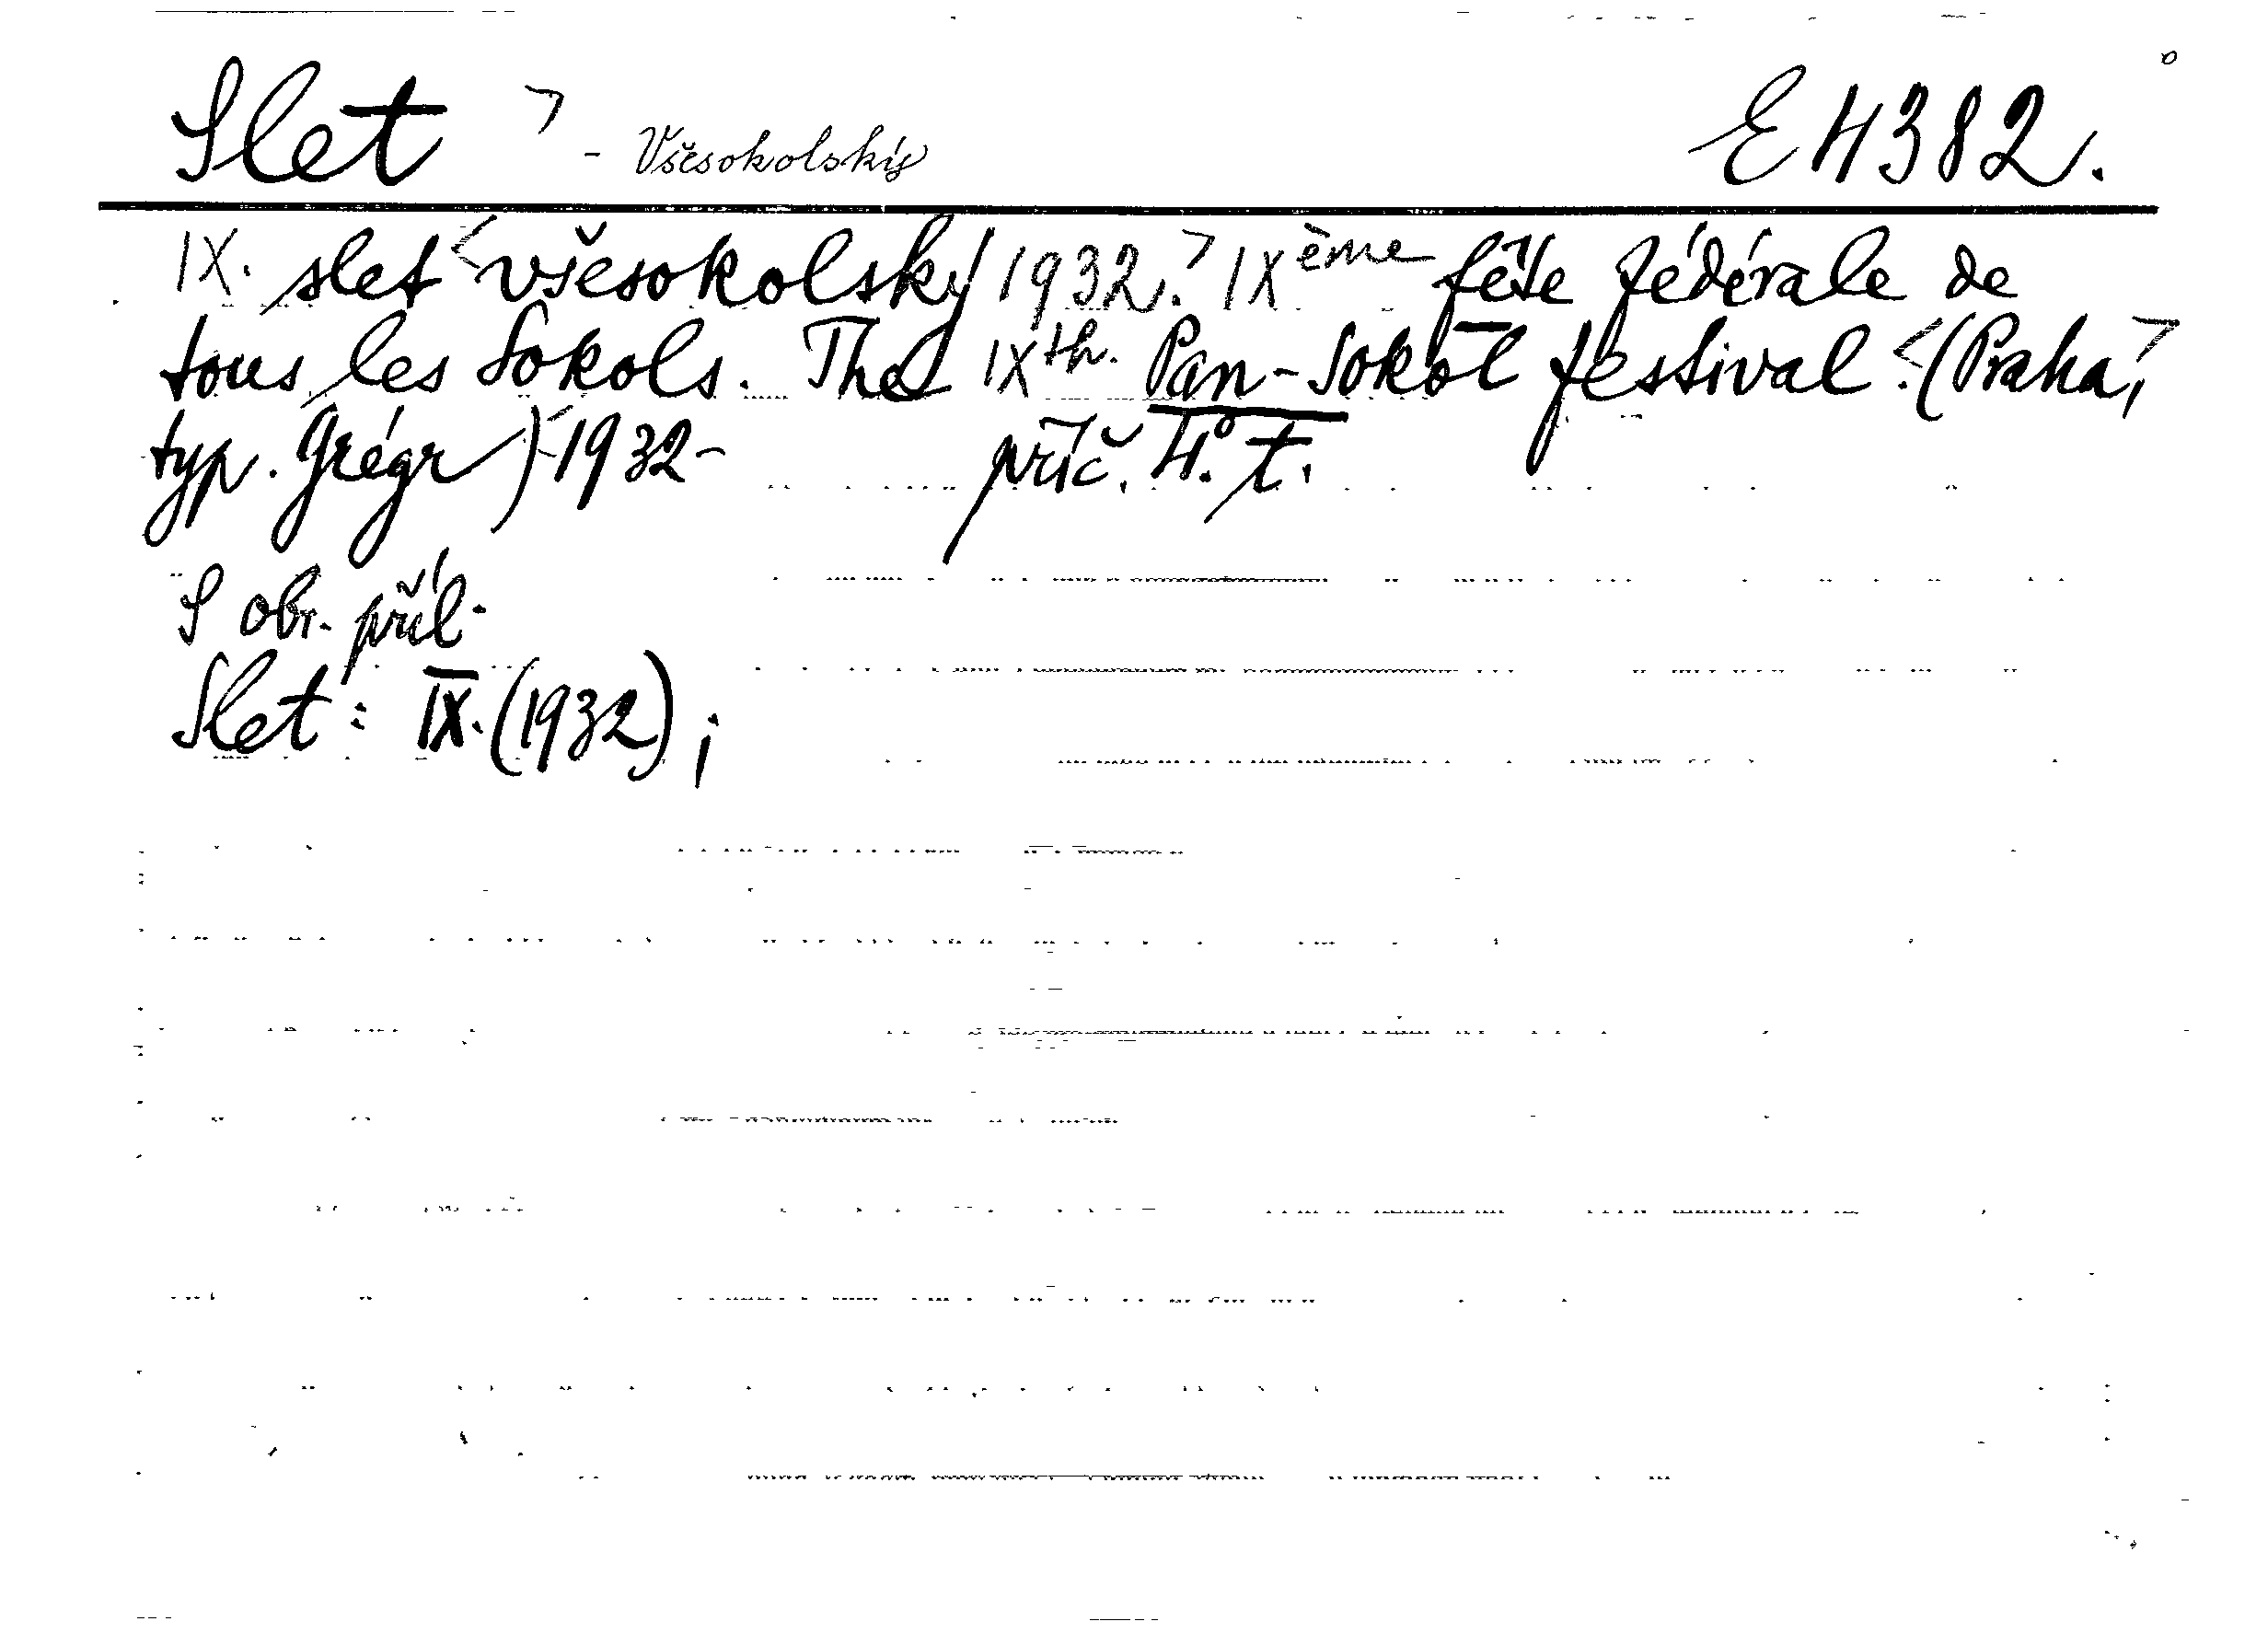 Slet - Všesokolský E 4382.
IX. slet všesokolský 1932. IXème fête fédérale de
tous les Sokols. The IXth. Pan-Sokol festival. (Praha,
typ. Grégr) 1932- příč. 4° t.
S obr. příl.
Slet: IX. (1932);